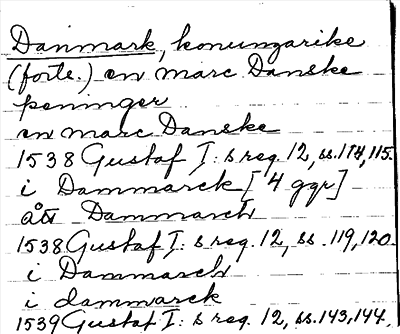 Danmark, konungarike
(forts.) en marc Danske
peninger
en marc Danske
1538 Gustaf I: s reg. 12, ss. 114, 115.
i Dammarck [4 ggr]
ått Dammarch
1538 Gustaf I: s reg. 12, ss. 119, 120.
i Dammarch
i dammarck
1539 Gustaf I: s reg. 12, ss. 143, 144.